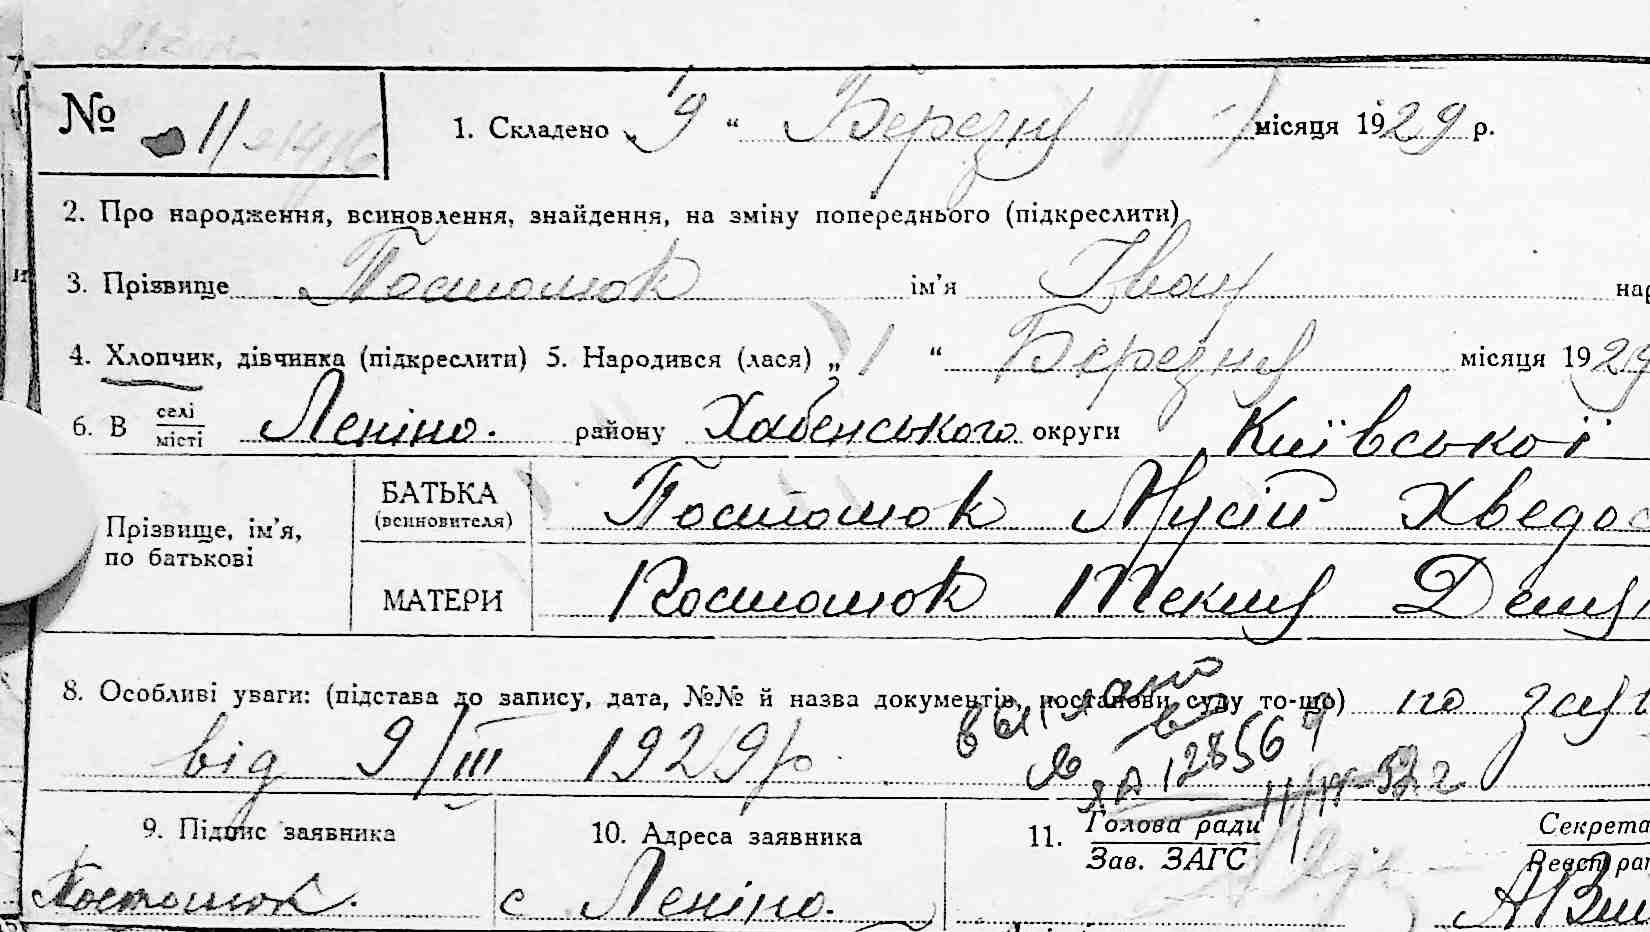 № 11
1. Складено „ 9 “ Березня місяця 1929 р.
2. Про народження, всиновлення, знайдення, на зміну попереднього (підкреслити)
3. Прізвище Постолюк ім'я Іван на
4. Хлопчик, дівчинка (підкреслити) 5. Народився (лася) „ 1 “ Березня місяця 1929
6. В селі місті Леніно. району Хабенського округи Київської
Прізвище, ім'я, по батькові
БАТЬКА (всиновителя) Постолюк Мусій Хведос
МАТЕРИ Постолюк Текля
8. Особливі уваги: (підстава до запису, дата, №№ й назва документів, постанови суду то-що) по
від 9/III 1929 р.
9. Підпис заявника 10. Адреса заявника 11. Голова ради Зав. ЗАГС Секрета
Постолюк. с Леніно.